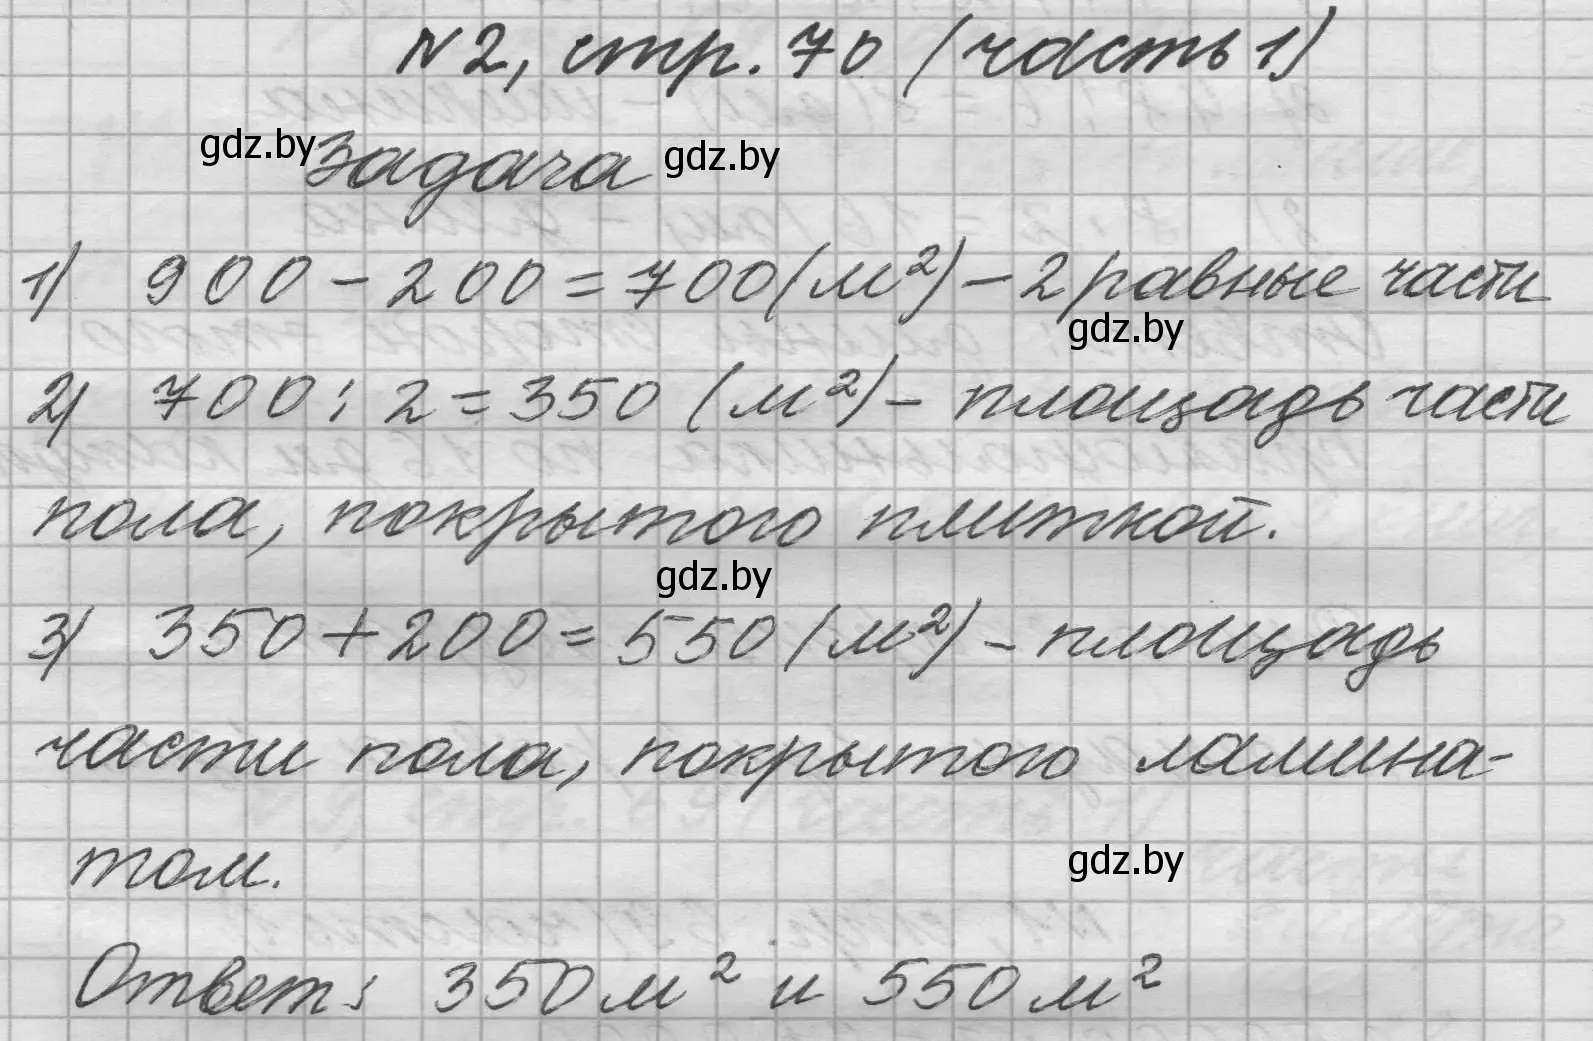 №2, стр. 70 (часть 1)
gdz.by Задача gdz.by
1) 900 - 200 = 700 (м²) - 2 равные части
gdz.by
2) 700 : 2 = 350 (м²) - площадь части
пола, покрытого плиткой.
gdz.by
3) 350 + 200 = 550 (м²) - площадь
части пола, покрытого ламина-
том.
gdz.by
Ответ: 350 м² и 550 м²